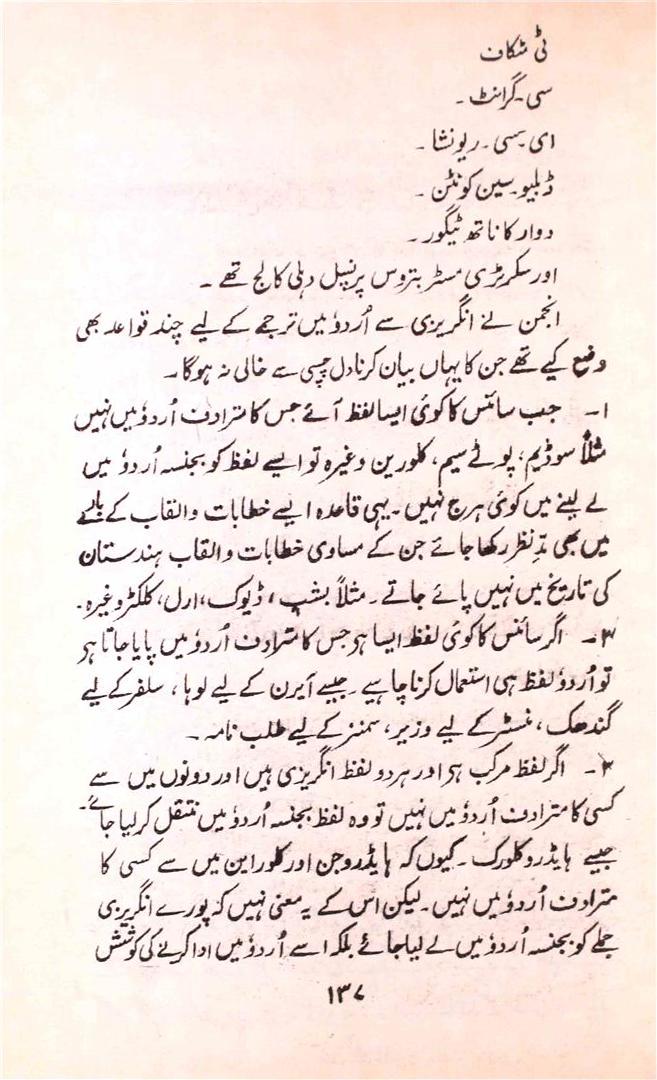 ٹی مٹکاف
سی۔ گرانٹ۔
ای۔ سی۔ ریونشا۔
ڈبلیو۔ سین کونٹن۔
دوار کا ناتھ ٹیگور۔
اور سکریٹری مسٹر بتروس پرنسپل دہلی کالج تھے۔
انجمن نے انگریزی سے اُردوٗ میں ترجمے کے لیے چند قواعد بھی
وضع کیے تھے جن کا یہاں بیان کرنا دل چسپی سے خالی نہ ہوگا۔
۱۔ جب سائنس کا کوئی ایسا لفظ آئے جس کا مترادف اُردوٗ میں نہیں
مثلاً سوڈیم، پوٹے سیم، کلورین وغیرہ تو ایسے لفظ کو بجنسہ اُردوٗ میں
لے لینے میں کوئی ہرج نہیں۔ یہی قاعدہ ایسے خطابات و القاب کے بارے
میں بھی مدِّ نظر رکھا جائے جن کے مساوی خطابات و القاب ہندستان
کی تاریخ میں نہیں پائے جاتے۔ مثلاً بشپ، ڈیوک، ارل، کلکٹر وغیرہ۔
۲۔ اگر سائنس کا کوئی لفظ ایسا ہو جس کا مترادف اُردوٗ میں پایا جاتا ہو
تو اُردوٗ لفظ ہی استعمال کرنا چاہیے۔ جیسے آیرن کے لیے لوہا، سلفر کے لیے
گندھک، منسٹر کے لیے وزیر، سمنز کے لیے طلب نامہ۔
۳۔ اگر لفظ مرکب ہو اور ہر دو لفظ انگریزی ہیں اور دونوں میں سے
کسی کا مترادف اُردوٗ میں نہیں تو وہ لفظ بجنسہ اُردوٗ میں منتقل کر لیا جائے۔
جیسے ہایڈروکلورک۔ کیوں کہ ہایڈروجن اور کلوراین میں سے کسی کا
مترادف اُردوٗ میں نہیں۔ لیکن اس کے یہ معنی نہیں کہ پورے انگریزی
جملے کو بجنسہ اُردوٗ میں لے لیا جائے بلکہ اسے اُردوٗ میں ادا کرنے کی کوشش
۱۳۷